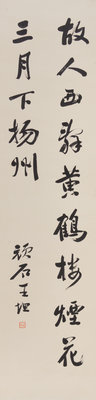 故人西辭黃鶴樓煙花
三月下揚州
頑石王坦